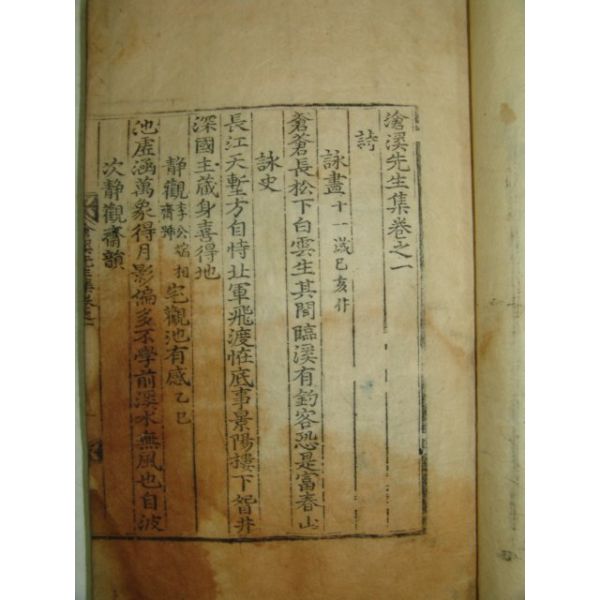 滄溪先生集卷之一
詩
詠畫 十一歲己亥作
蒼蒼長松下白雲生其間臨溪有釣客恐是富春山
詠史
長江天塹方自恃北軍飛渡恠底事景陽樓下智井
深國主藏身喜得地
静觀齋 李公端相 宅觀池有感 乙巳
池虛涵萬象得月影偏多不學前溪水無風也自波
次静觀齋韻